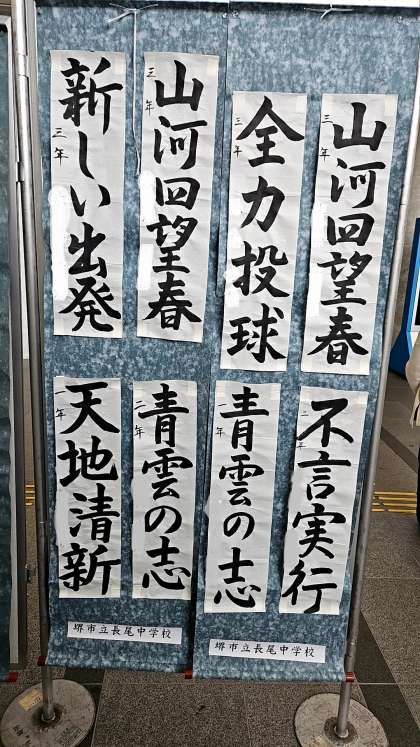 山河回望春
三年
全力投球
三年
山河回望春
三年
新しい出発
三年
不言実行
二年
青雲の志
一年
青雲の志
二年
天地清新
一年
堺市立長尾中学校
堺市立長尾中学校